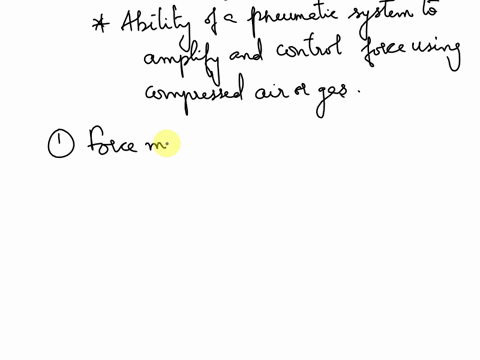 * Ability of a pneumatic system to
amplify and control force using
compressed air or gas.
① Force m